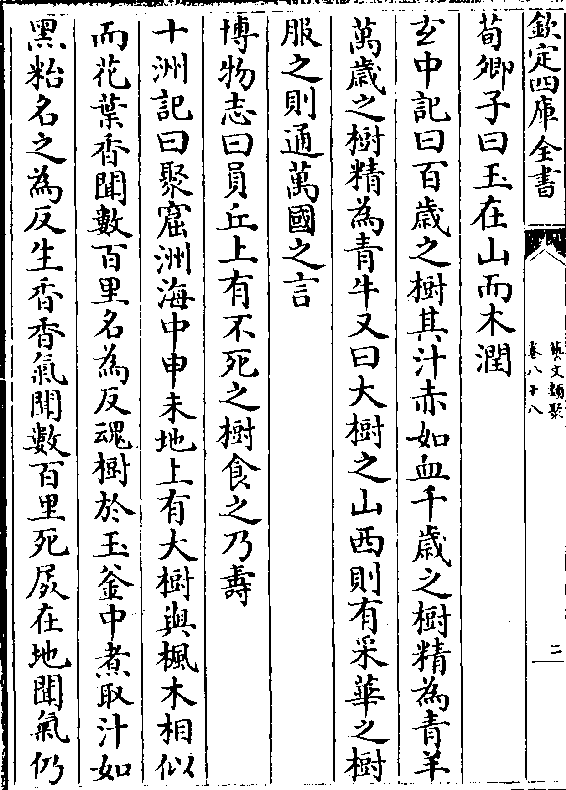 欽定四庫全書
藝文類聚
卷八十八
二
荀卿子曰玉在山而木潤
玄中記曰百歲之樹其汁赤如血千歲之樹精為青羊
萬歲之樹精為青牛又曰大樹之山西則有采華之樹
服之則通萬國之言
博物志曰員丘上有不死之樹食之乃壽
十洲記曰聚窟洲海中申未地上有大樹與楓木相似
而花葉香聞數百里名為反魂樹於玉釜中煮取汁如
黑粘名之為反生香香氣聞數百里死屍在地聞氣仍